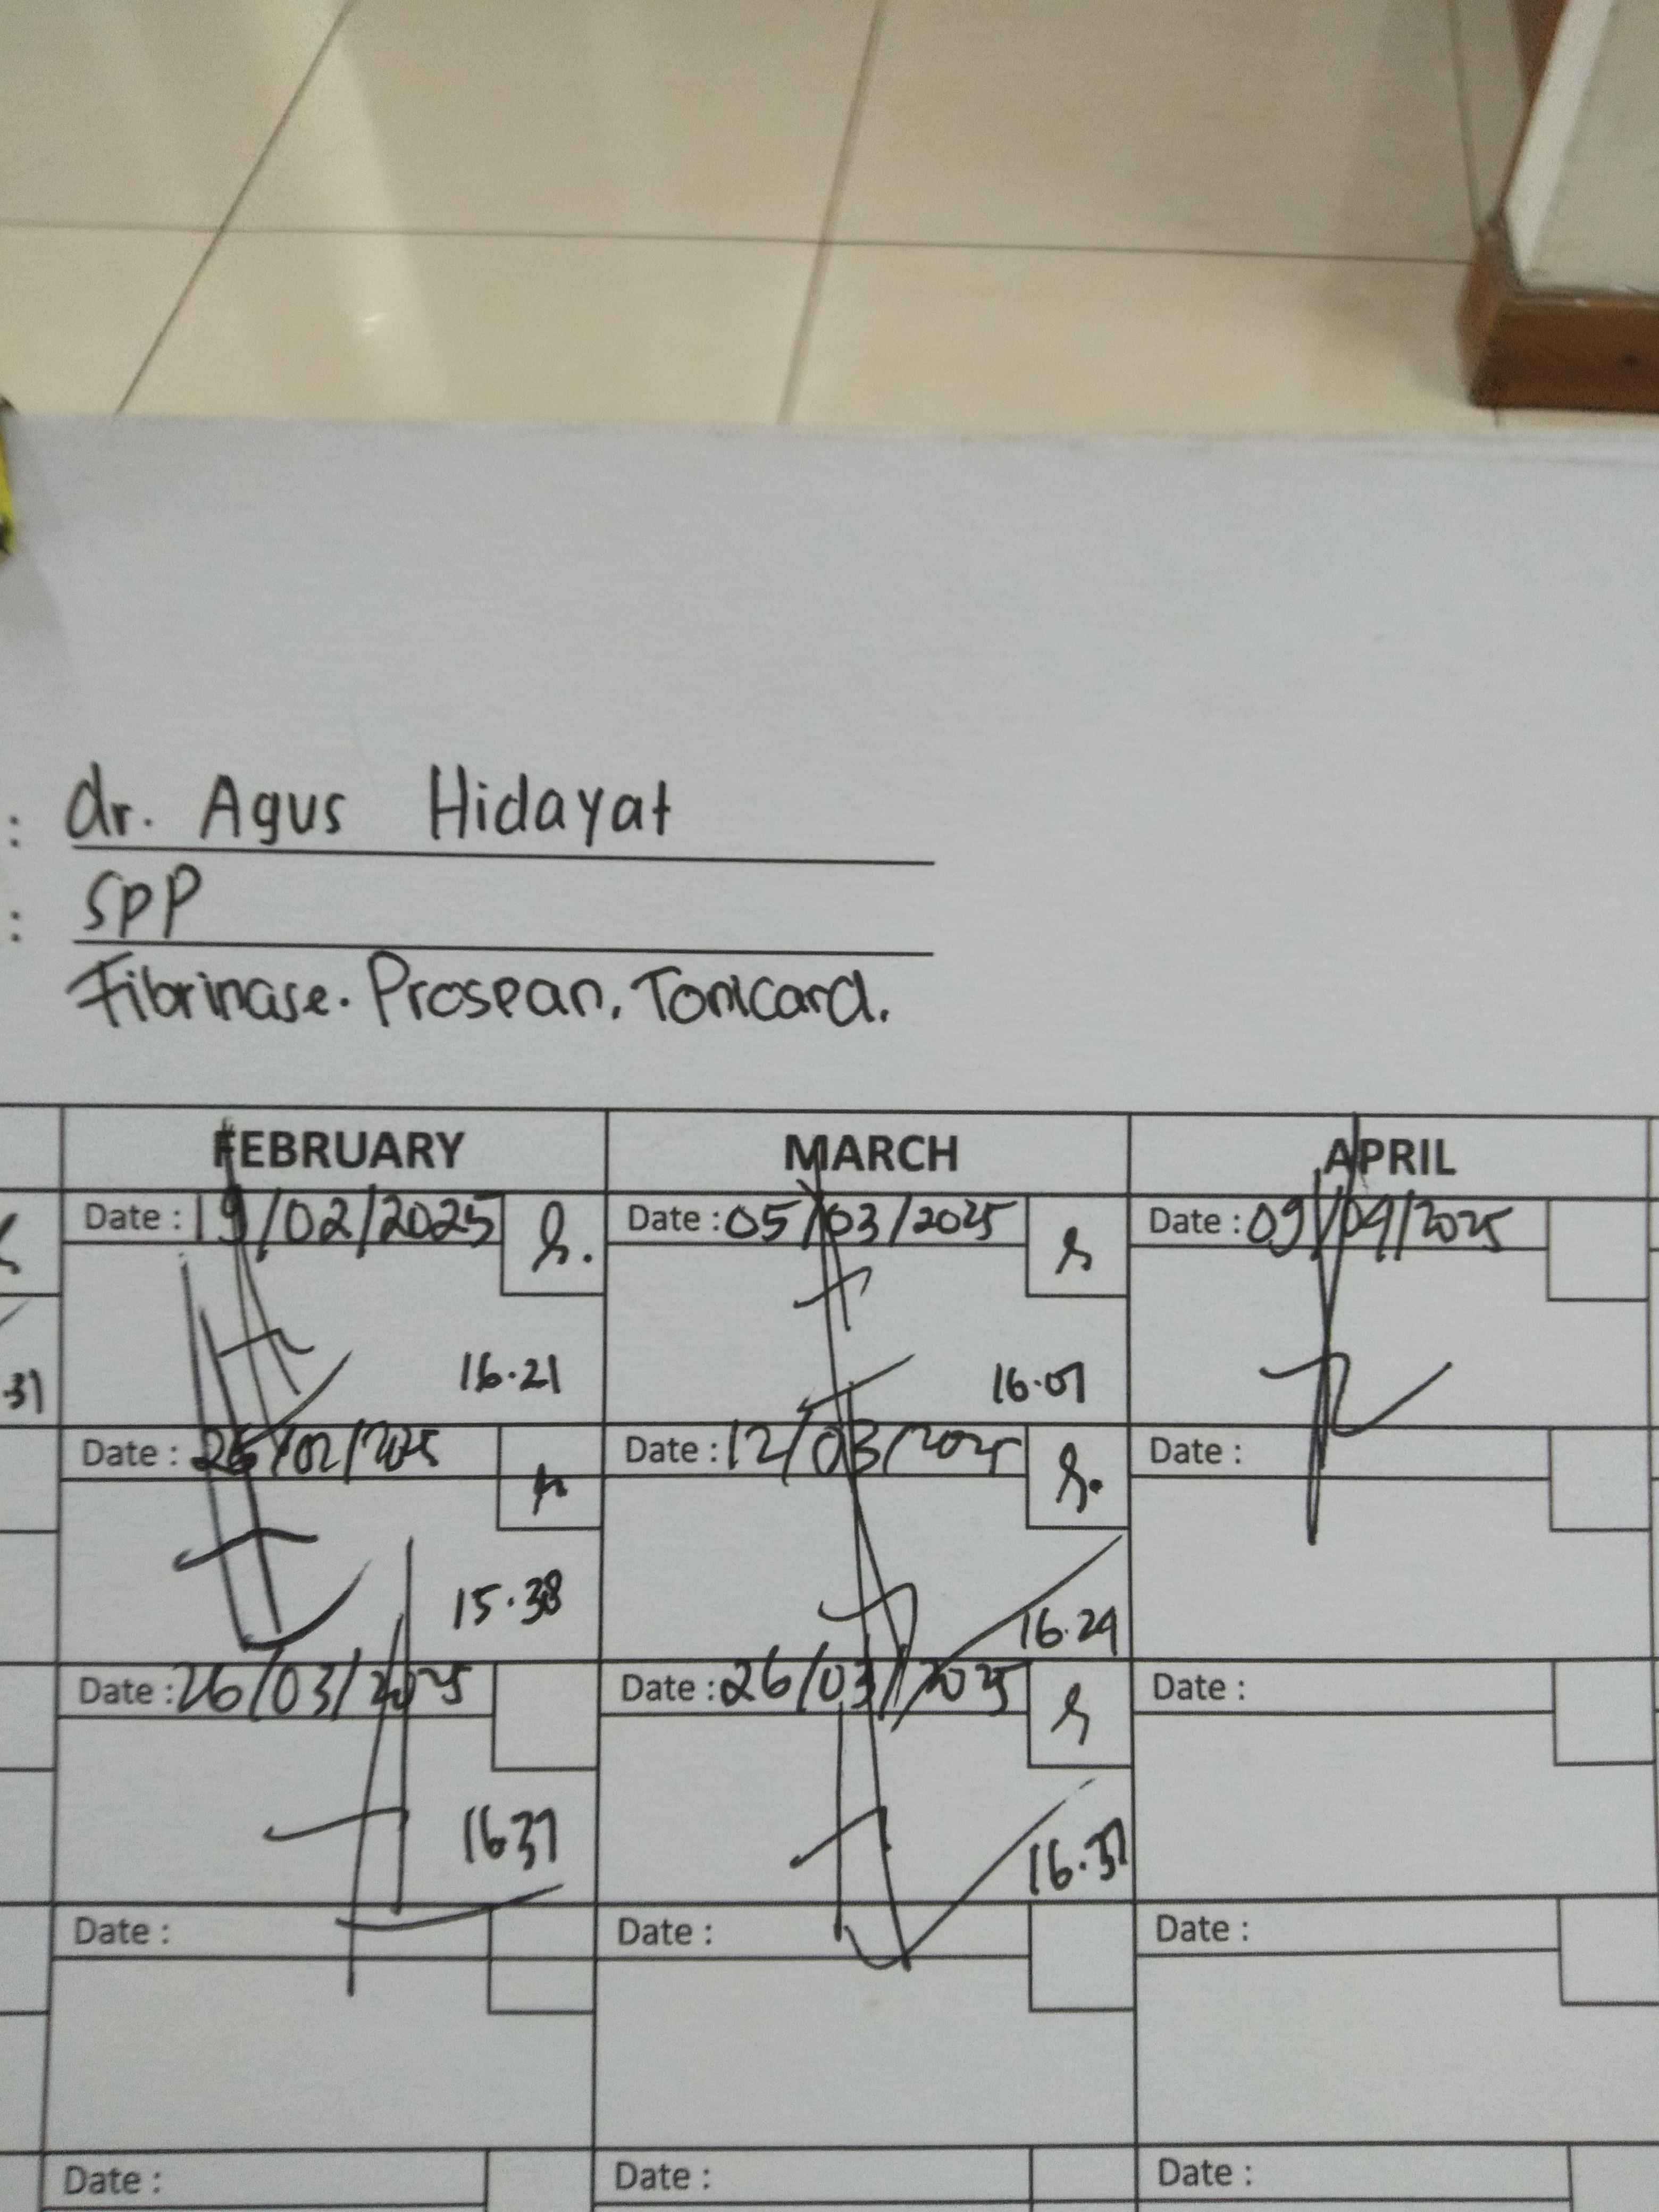 : dr. Agus Hidayat
: SPP
Fibrinase. Prosean. Tonicard.
FEBRUARY MARCH APRIL
Date : 19/02/2025 Date : 05/03/2025 Date : 09/04/2025
.37 16.21 16.07
Date : 26/02/2025 Date : 12/03/2025 Date :
15.38 16.24
Date : 26/03/2025 Date : 26/03/2025 Date :
1637 16.37
Date : Date : Date :
Date : Date : Date :